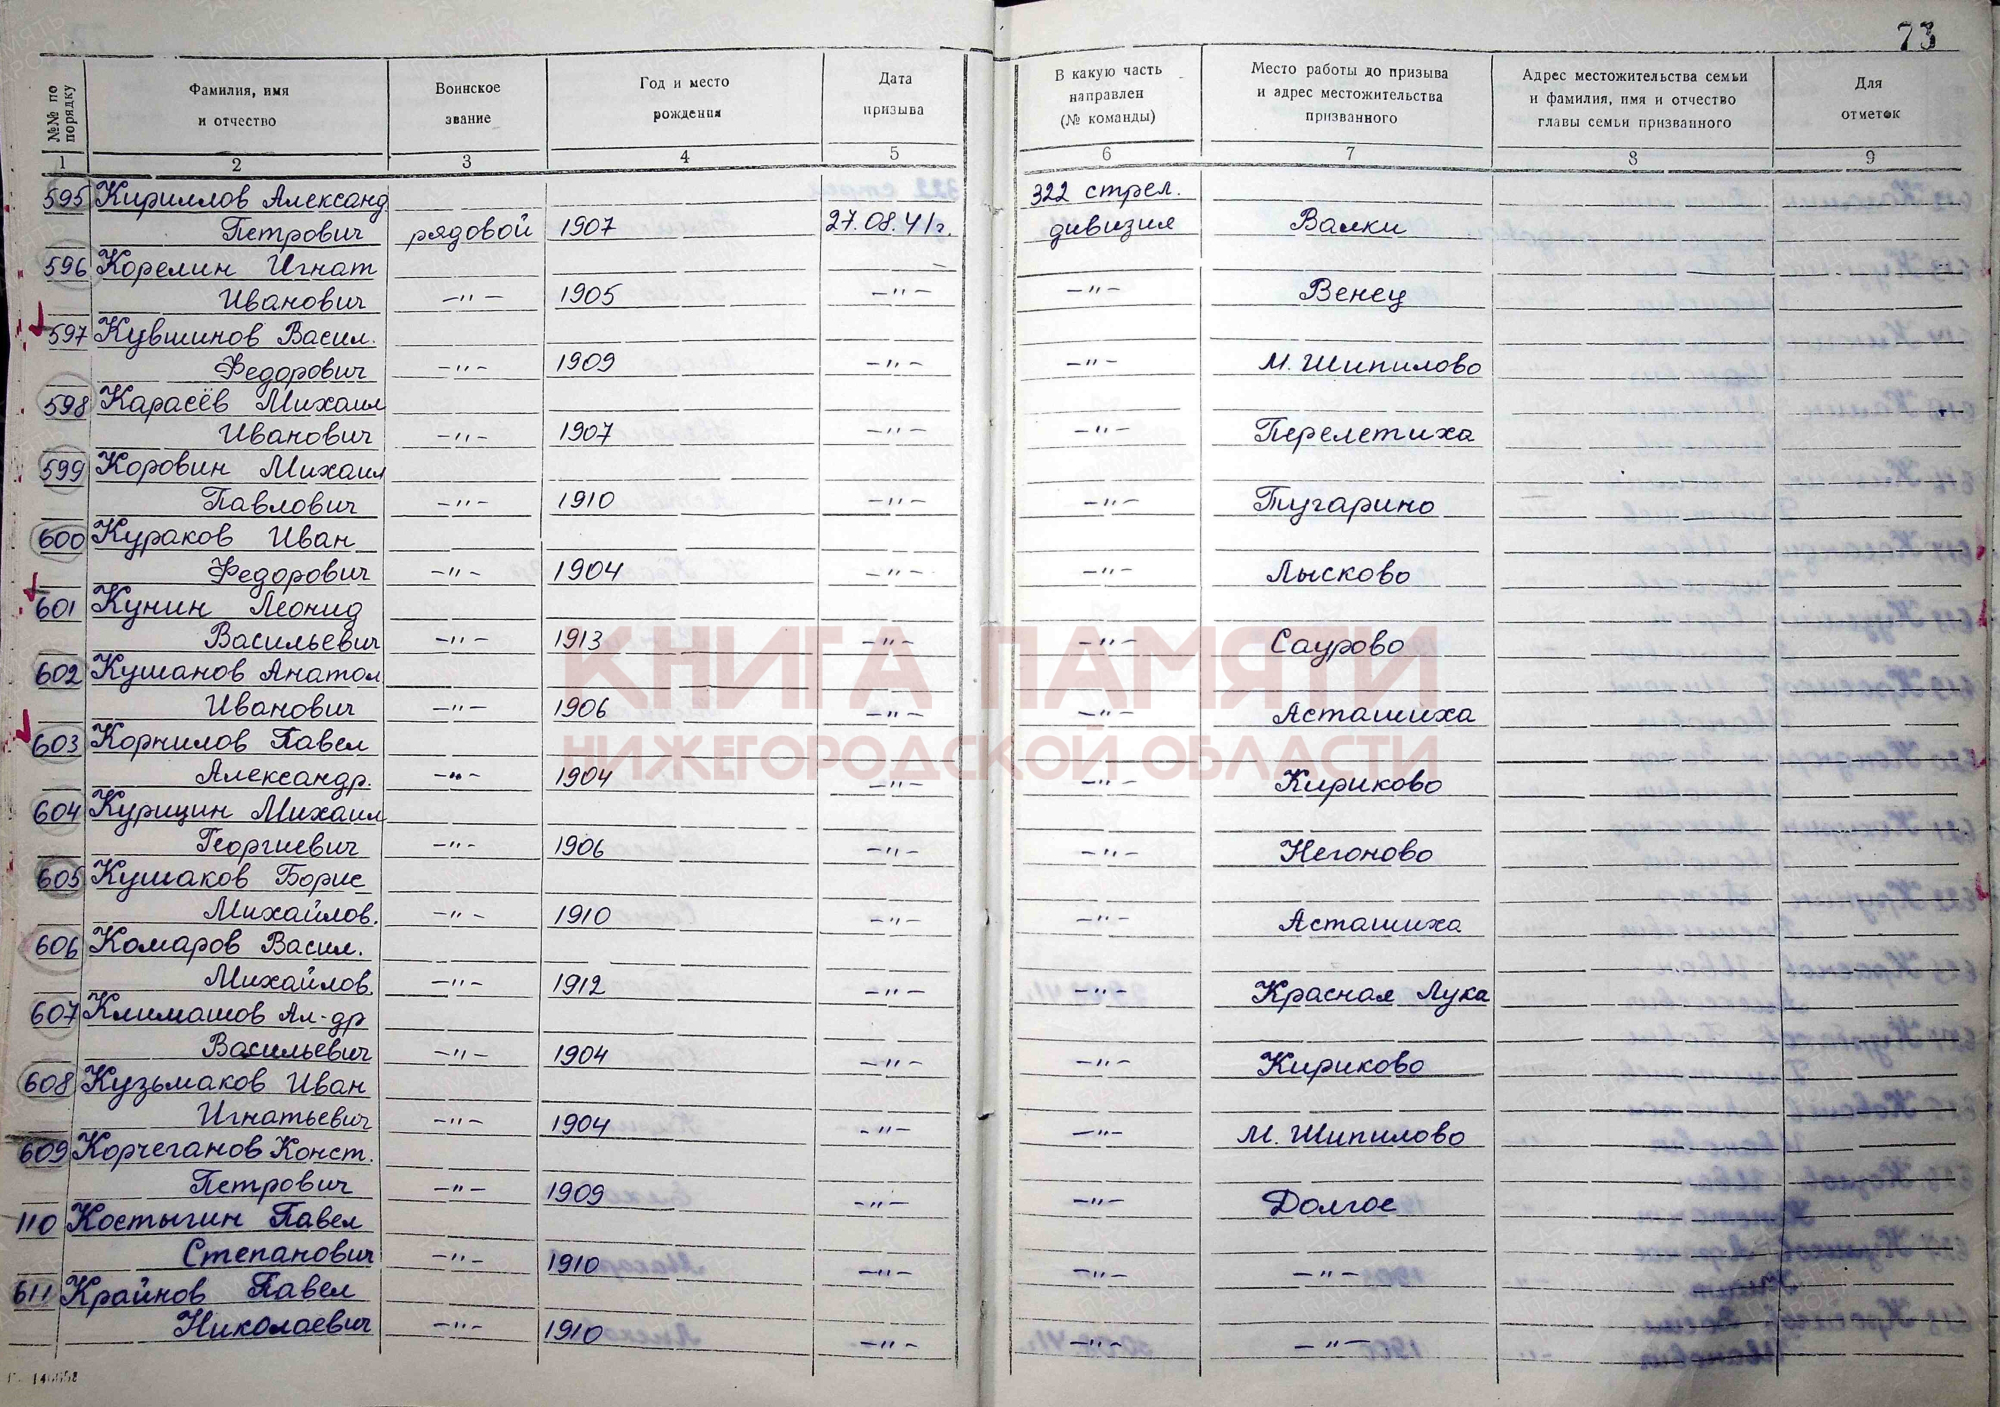 73
№№ по порядку
Фамилия, имя и отчество
Воинское звание
Год и место рождения
Дата призыва
В какую часть направлен (№ команды)
Место работы до призыва и адрес местожительства призванного
Адрес местожительства семьи и фамилия, имя и отчество главы семьи призванного
Для отметок
1 2 3 4 5 6 7 8 9
595 Кириллов Александ 322 стрел.
Петрович рядовой 1907 27.08.41г. дивизия Валки
596 Корелин Игнат
Иванович —"— 1905 —"— —"— Венец
597 Кувшинов Васил.
Федорович —"— 1909 —"— —"— М. Шипилово
598 Карасёв Михаил
Иванович —"— 1907 —"— —"— Перелетиха
599 Коровин Михаил
Павлович —"— 1910 —"— —"— Тугарино
600 Кураков Иван
Федорович —"— 1904 —"— —"— Лысково
601 Кунин Леонид
Васильевич —"— 1913 —"— —"— Саурово
602 Кушанов Анатол
Иванович —"— 1906 —"— —"— Асташиха
603 Корнилов Павел
Александр. —"— 1904 —"— —"— Кириково
604 Курицин Михаил
Георгиевич —"— 1906 —"— —"— Негоново
605 Кушаков Борис
Михайлов. —"— 1910 —"— —"— Асташиха
606 Комаров Васил.
Михайлов. —"— 1912 —"— —"— Красная Лука
607 Климашов Ал-др
Васильевич —"— 1904 —"— —"— Кириково
608 Кузьмаков Иван
Игнатьевич —"— 1904 —"— —"— М. Шипилово
609 Корчеганов Конст.
Петрович —"— 1909 —"— —"— Долгое
110 Костыгин Павел
Степанович —"— 1910 —"— —"— —"—
611 Крайнов Павел
Николаевич —"— 1910 —"— —"— —"—
КНИГА ПАМЯТИ
НИЖЕГОРОДСКОЙ ОБЛАСТИ